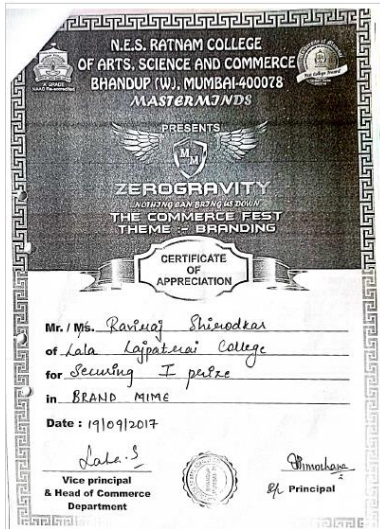 N.E.S. RATNAM COLLEGE
OF ARTS, SCIENCE AND COMMERCE
BHANDUP (W), MUMBAI-400078
MASTERMINDS
'A' GRADE
NAAC Re-accredited
Best College Award
PRESENTS
MM
ZEROGRAVITY
...NOTHING CAN BRING US DOWN
THE COMMERCE FEST
THEME :- BRANDING
CERTIFICATE
OF
APPRECIATION
Mr. / Ms. Raviraj Shirodkar
of Lala Lajpatrai College
for Securing I prize
in BRAND MIME
Date : 19/09/2017
Vice principal
& Head of Commerce
Department
Principal